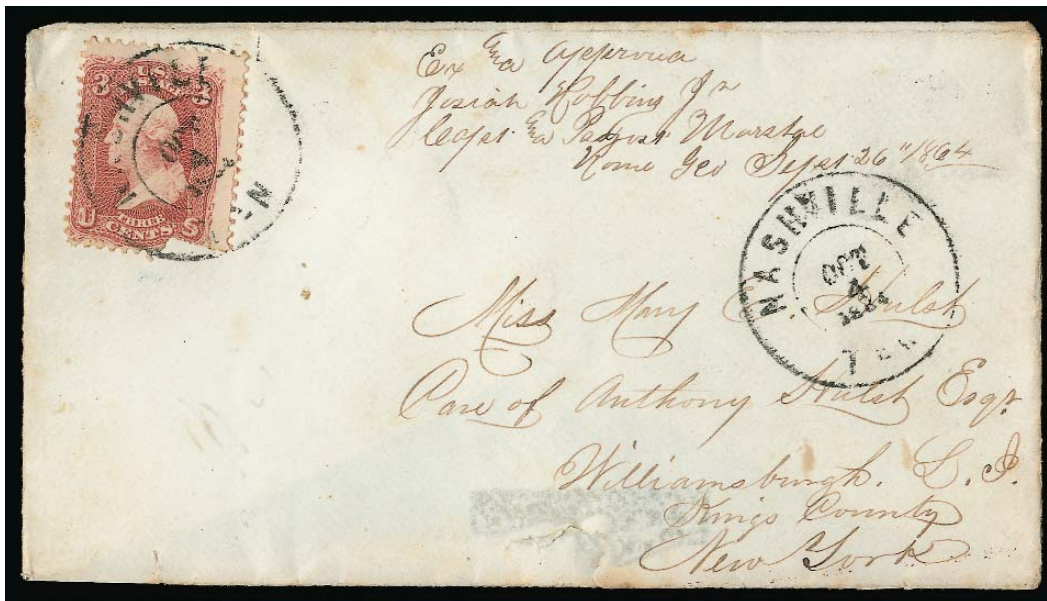 3 3
U THREE CENTS S
NASHVILLE
OCT
4
TEN
Ex d and approved
Josiah Robbins Jr
Capt and Provost Marshal
Rome Geo Sept 26" 1864
NASHVILLE
OCT
4
1864
TEN
Miss Mary E. Hulst
Care of Anthony Hulst Esqr.
Williamsburgh. L. I.
Kings County
New York